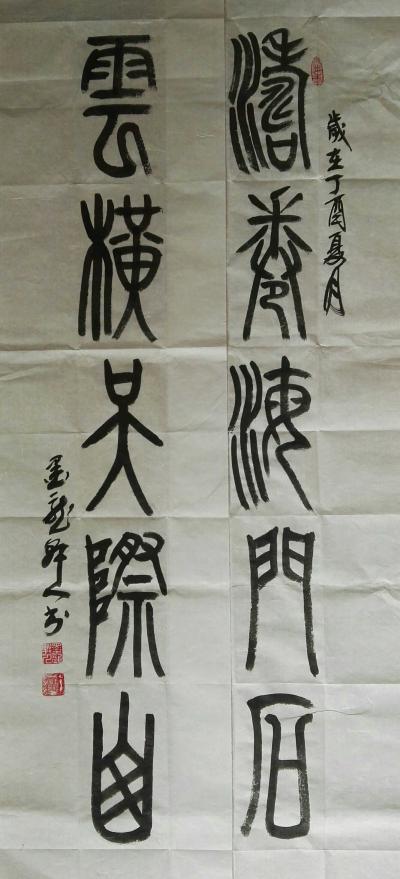 歲在丁酉夏月
濤卷海門石
雲橫天際山
墨龍人书